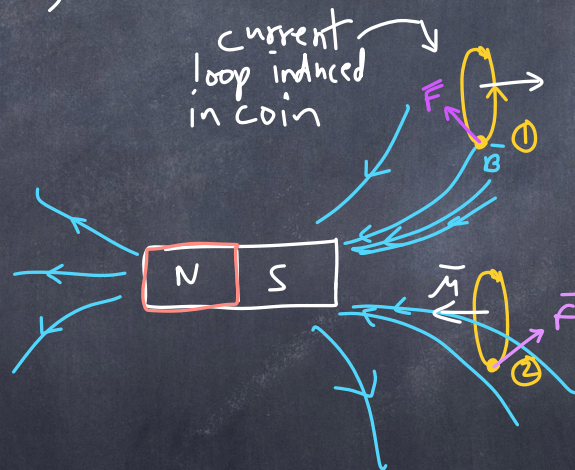 current
loop induced
in coin
F
B
①
N
S
M
F
②